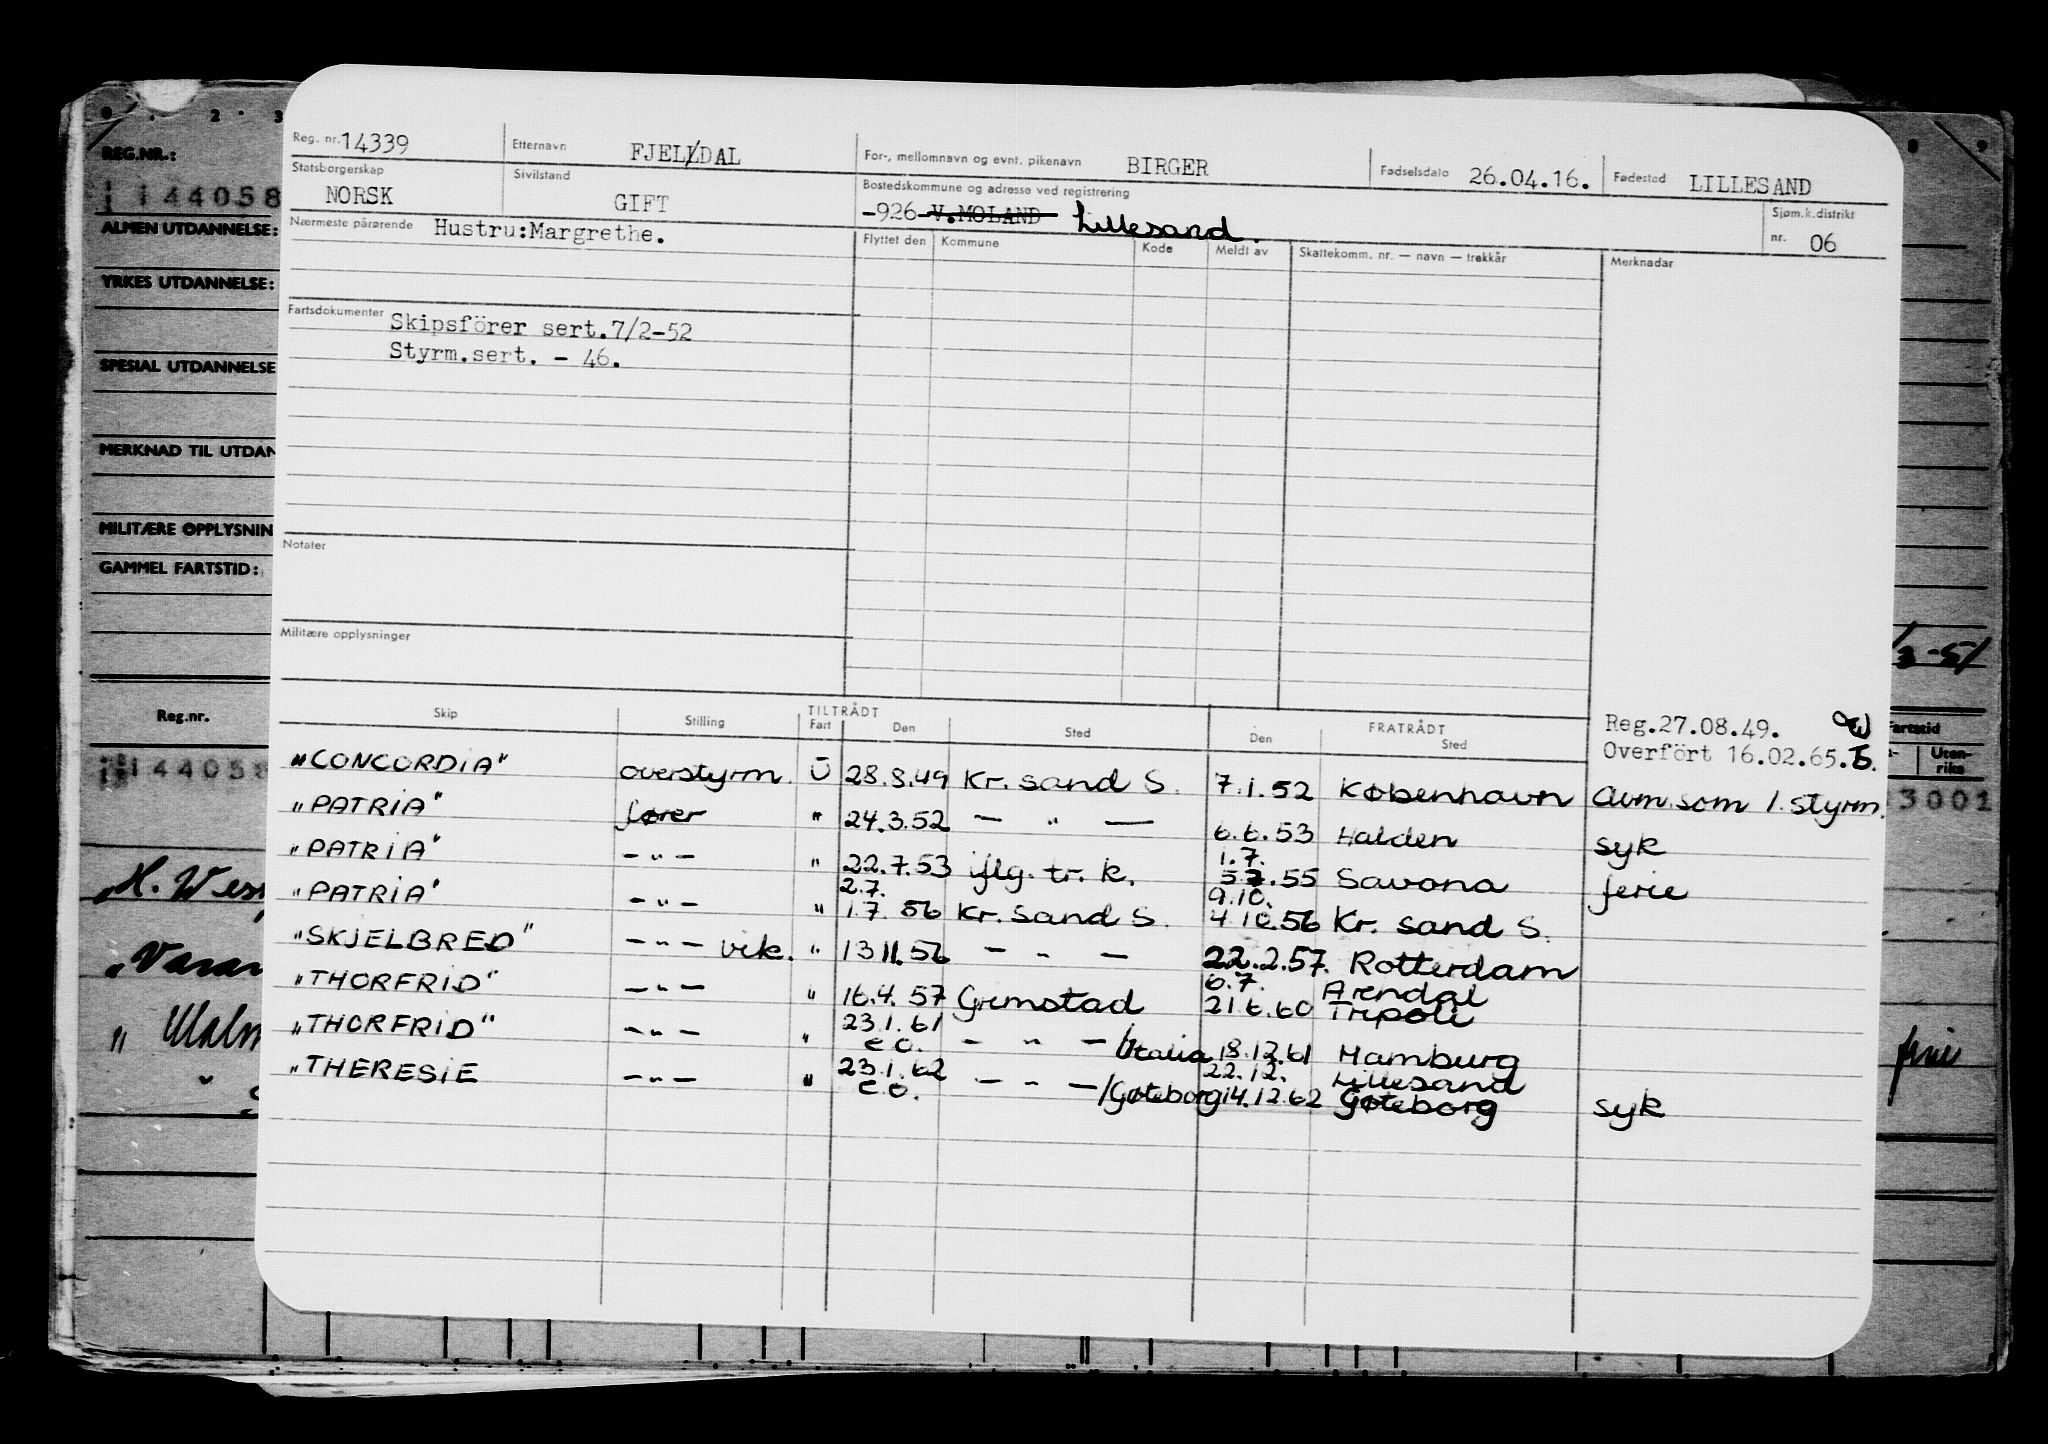 Reg. nr. 14339 Etternavn FJEL/DAL For-, mellomnavn og evnt. pikenavn BIRGER Fødselsdato 26.04.16. Fødested LILLESAND
Statsborgerskap NORSK Sivilstand GIFT Bostedskommune og adresse ved registrering -926 V.MOLAND Lillesand. Sjøm.k.distrikt nr. 06
Nærmeste pårørende Hustru:Margrethe. Flyttet den Kommune Kode Meldt av Skattekomm. nr. — navn — trekkår Merknader
Fartsdokumenter Skipsförer sert.7/2-52
Styrm.sert. - 46.
Notater
Militære opplysninger
Reg.27.08.49.
Overfört 16.02.65.
Skip Stilling TILTRÅDT Fart Den Sted FRATRÅDT Den Sted
"CONCORDIA" overstyrm. U 28.8.49 Kr. sand S. 7.1.52 København Avm. som 1. styrm.
"PATRIA" fører " 24.3.52 — " — 6.6.53 Halden syk
"PATRIA" — " — " 22.7.53 iflg. tr. k. 1.7. 5.7.55 Savona ferie
"PATRIA" — " — " 2.7. 1.7. 56 Kr. sand S. 9.10. 4.10.56 Kr. sand S.
"SKJELBRED" — " — vik. " 13 11.56 — " — 22.2.57. Rotterdam
"THORFRID" — " — " 16.4.57 Grimstad 6.7. 21 6.60 Arendal Tripoli
"THORFRID" — " — " 23.1.61 e.o. — " — /Italia 18.12.61 Hamburg
"THERESIE — " — " 23.1.62 e.o. — " — /Gøteborg 22.12. 14.12.62 Lillesand Gøteborg syk
REG.NR.:
144058
ALMEN UTDANNELSE:
YRKES UTDANNELSE:
SPESIAL UTDANNELSE
MERKNAD TIL UTDAN
MILITÆRE OPPLYSNIN
GAMMEL FARTSTID:
/3-51
Reg.nr.
Fartstid
Uten-
riks
144058
3001